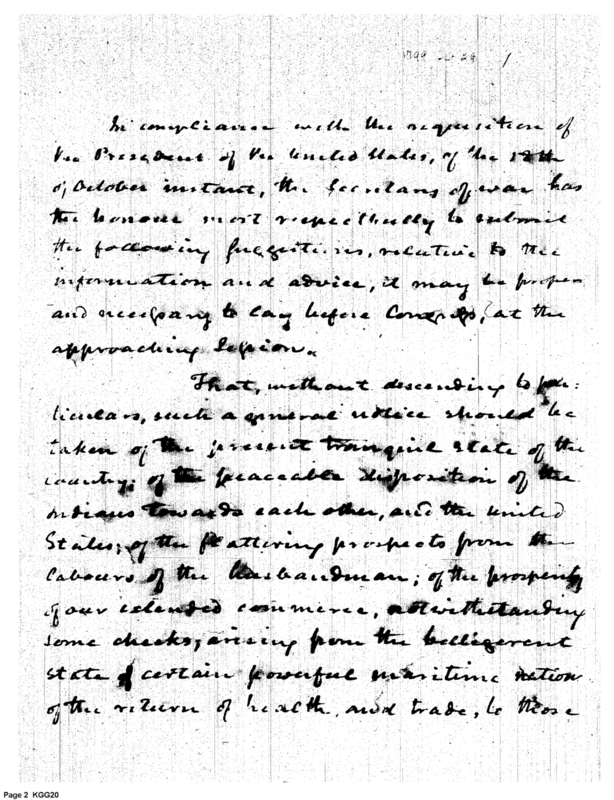 1799 29 1
In compliance with the requisition of
the President of the United States, of the 12th
of October instant, the Secretary of war has
the honour most respectfully to submit
the following suggestions, relative to the
information and advice, it may be proper
and necessary to lay before Congress, at the
approaching Session.
That, without descending to par:
ticulars, such a general notice should be
taken of the present tranquil state of the
country; of the peaceable disposition of the
Indians towards each other, and the United
States; of the flattering prospects from the
labours of the husbandman; of the prosperity
of our extended commerce, notwithstanding
some checks, arising from the belligerent
state of certain powerful maritime nation
of the return of health, and trade, to those
Page 2 KGG20